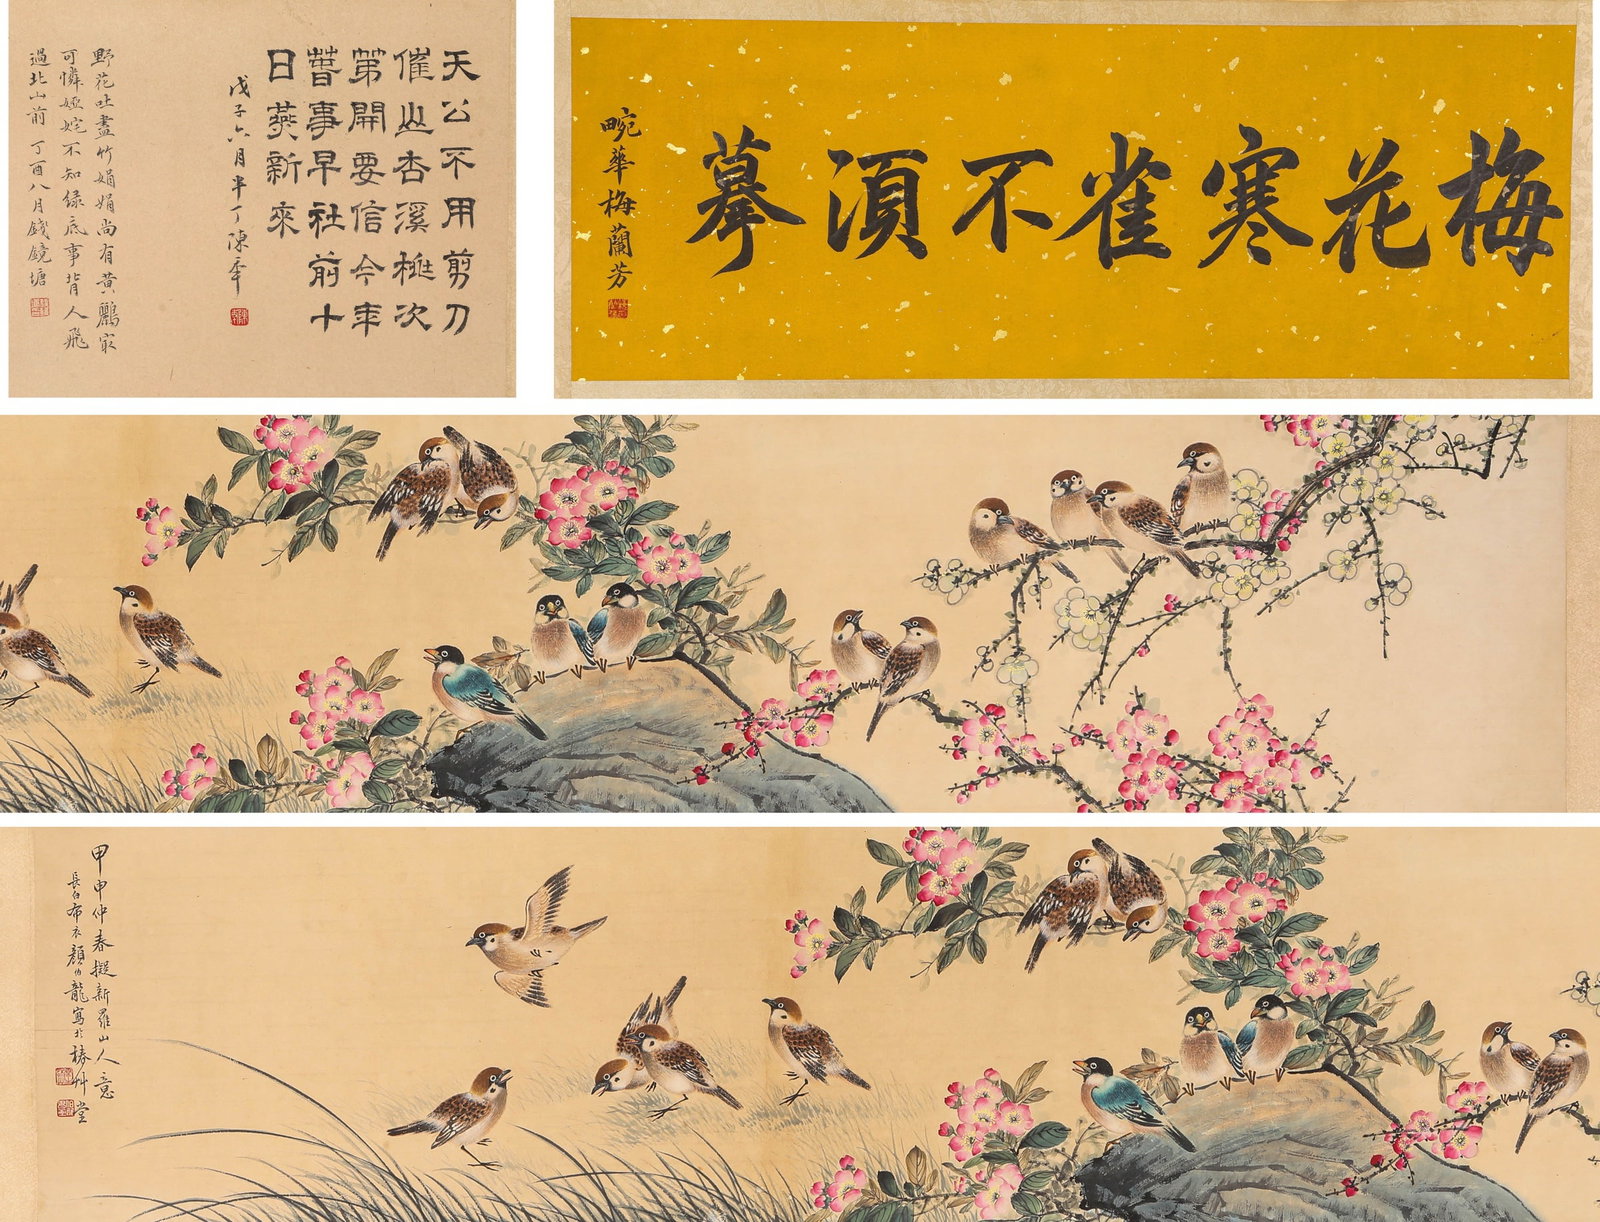 梅花寒雀不須摹
畹華梅蘭芳
天公不用剪刀
催山杏溪桃次
第開要信今年
春事早社前十
日燕新來
戊子六月半丁陳年
野花吐盡竹娟娟尚有黃鸝最
可憐婭姹不知緣底事背人飛
過北山前 丁酉八月錢鏡塘
甲申仲春擬新羅山人意
長白布衣顏伯龍寫於椿艸堂